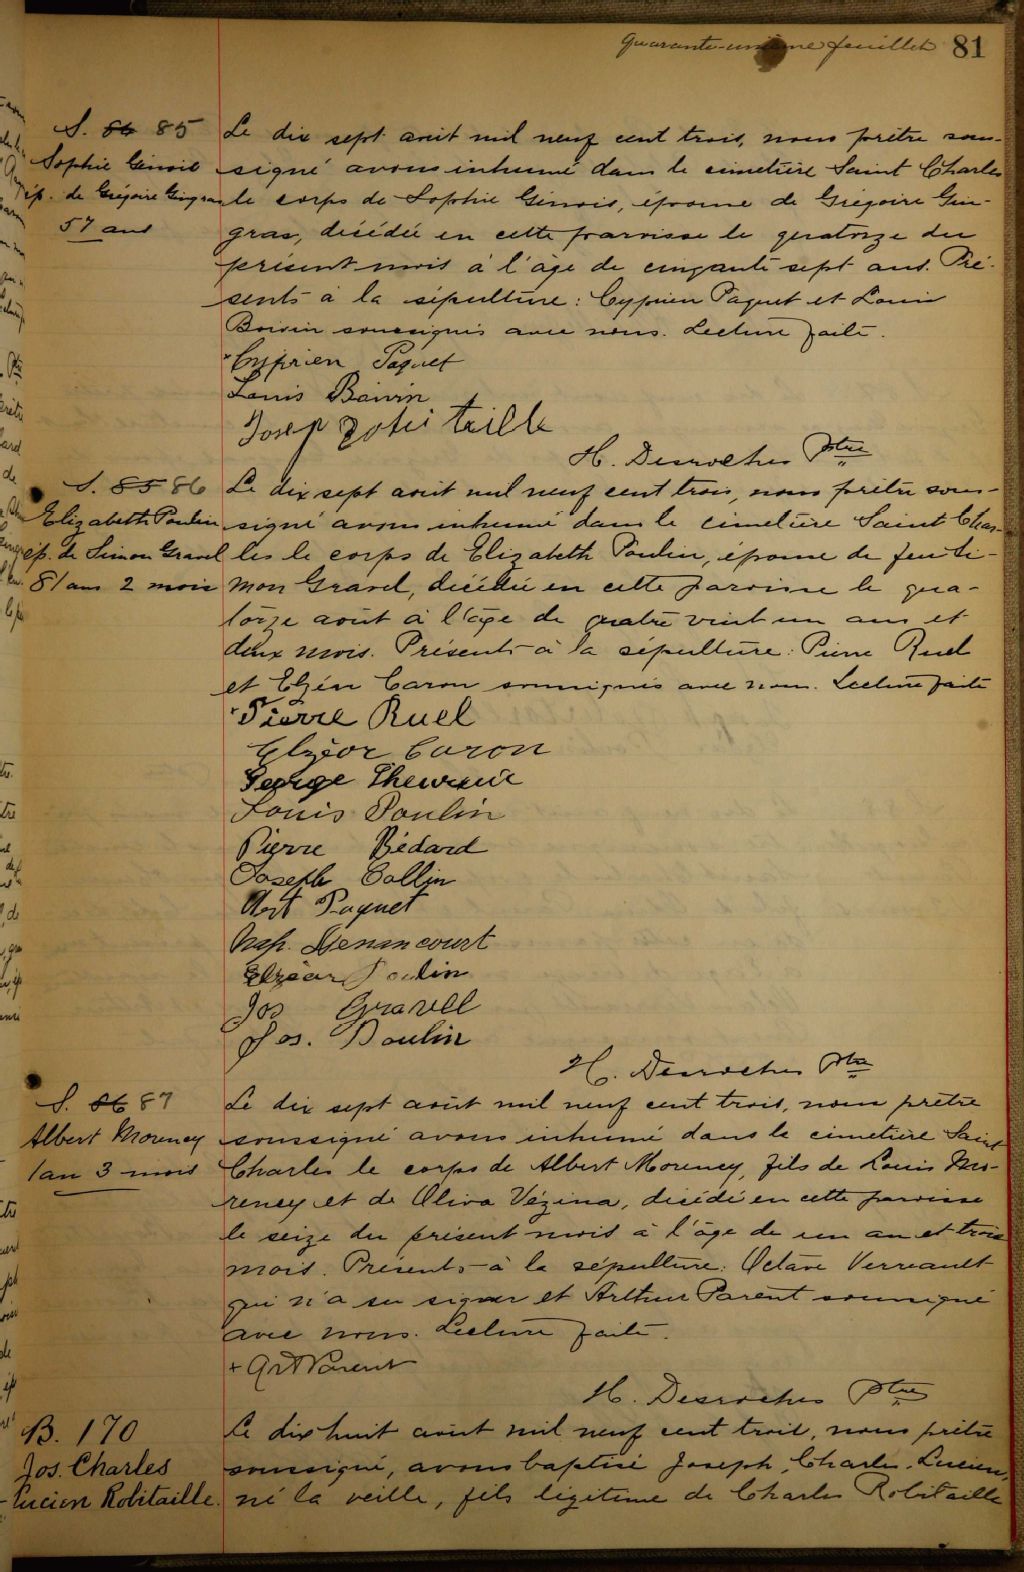 Quarante-unième feuillet 81
S. 84 85
Sophie Génois
ép. de Grégoire Gingras
57 ans
Le dix sept août mil neuf cent trois, nous prêtre sous-
signé avons inhumé dans le cimetière Saint Charles
le corps de Sophie Génois, épouse de Grégoire Gin-
gras, décédée en cette paroisse le quatorze du
présent mois à l'âge de cinquante sept ans. Pré-
sents à la sépulture: Cyprien Paquet et Louis
Boivin soussignés avec nous. Lecture faite.
Cyprien Paquet
Louis Boivin
Josep Robitaille
H. Desroches Ptre
S. 85 86
Elizabeth Poulin
ép. de Simon Gravel
81 ans 2 mois
Le dix sept août mil neuf cent trois, nous prêtre sous-
signé avons inhumé dans le cimetière Saint Char-
les le corps de Elizabeth Poulin, épouse de feu Si-
mon Gravel, décédée en cette paroisse le qua-
torze août à l'âge de quatre vint un ans et
deux mois. Présents à la sépulture: Pierre Ruel
et Elzéar Caron soussignés avec nous. Lecture faite
Pierre Ruel
Elzéor Caron
George
Louis Poulin
Pierre Bédard
Joseph Collin
Paquet
Nap. Denancourt
Elzéar Poulin
Jos Gravell
Jos. Poulin
H. Desroches Ptre
S. 86 87
Albert Morency
1 an 3 mois
Le dix sept août mil neuf cent trois, nous prêtre
soussigné avons inhumé dans le cimetière Saint
Charles le corps de Albert Morency, fils de Louis Mo-
rency et de Oliva Vézina, décédé en cette paroisse
le seize du présent mois à l'âge de un an et trois
mois. Présents à la sépulture: Octave Verreault
qui n'a su signer et Arthur Parent soussigné
avec nous. Lecture faite.
+ Art Parent
H. Desroches Ptre
B. 170
Jos. Charles
Lucien Robitaille.
Le dix huit août mil neuf cent trois, nous prêtre
soussigné, avons baptisé Joseph, Charles, Lucien,
né la veille, fils légitime de Charles Robitaille